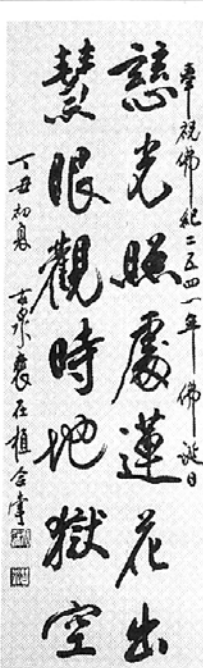 奉祝佛紀二五四一年佛誕日
慈光照處蓮花出
慧眼觀時地獄空
丁丑初夏 古泉裵在植合掌